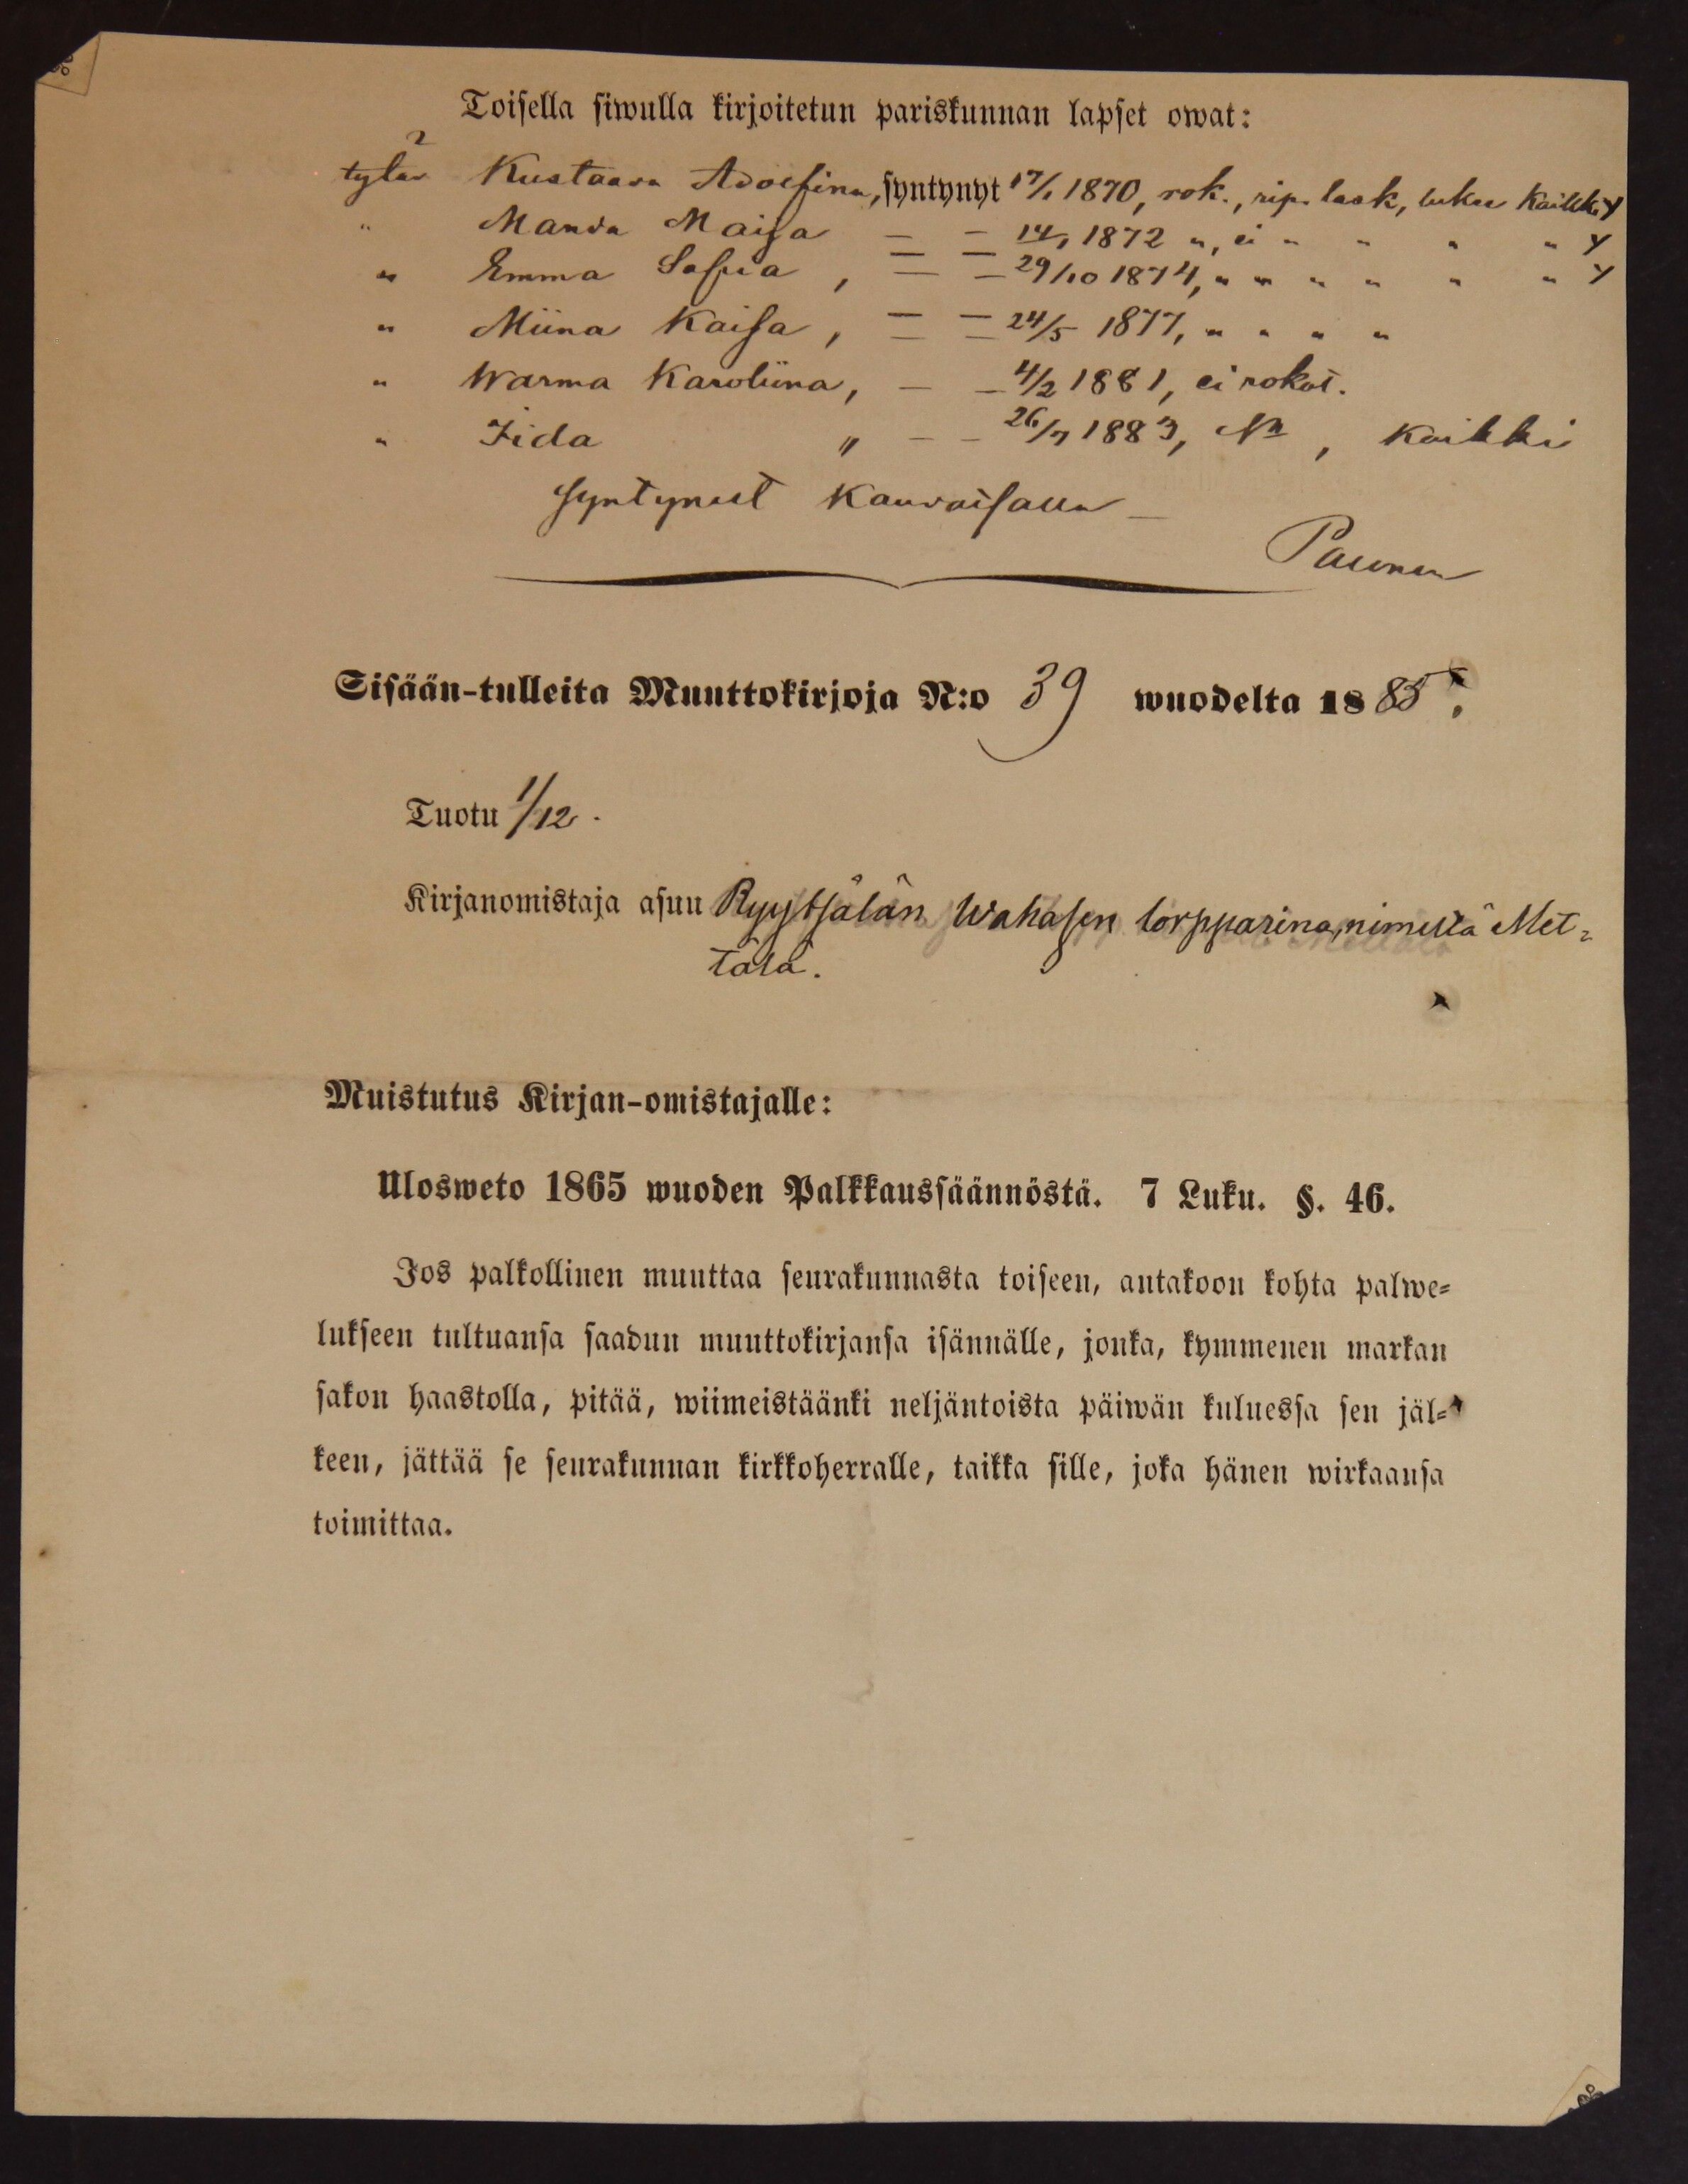 Toisella siwulla kirjoitetun pariskunnan lapset owat:
tytär Kustaava Adolfina, syntynyt 17/1 1870, rok., rip. lask, lukee kaikki Y
" Manda Maija — — 14/1 1872 ", ei " " " " Y
" Emma Sofia, — — 29/10 1874, " " " " " " Y
" Miina Kaisa, — — 24/5 1877, " " " "
" Warma Karoliina, — — 4/2 1881, ei rokot.
" Iida " — — 26/7 1883, , kaikki
syntyneet
Paunen
Sisään-tulleita Muuttokirjoja N:o 39 wuodelta 1885.
Tuotu 1/12.
Kirjanomistaja asuu Ryytsälän Wahasen torpparina, nimeltä Met-
tälä.
Muistutus Kirjan-omistajalle:
Ulosweto 1865 wuoden Palkkaussäännöstä. 7 Luku. §. 46.
Jos palkollinen muuttaa seurakunnasta toiseen, antakoon kohta palwe-
lukseen tultuansa saadun muuttokirjansa isännälle, jonka, kymmenen markan
sakon haastolla, pitää, wiimeistäänki neljäntoista päiwän kuluessa sen jäl-
keen, jättää se seurakunnan kirkkoherralle, taikka sille, joka hänen wirkaansa
toimittaa.